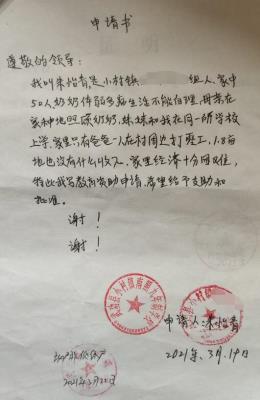 申请书
尊敬的领导：
我叫朱怡青，是小村镇 组人，家中
50人，奶奶体弱多病生活不能自理，母亲在
家种地照顾奶奶，妹妹和我在同一所学校
上学，家里只有爸爸一人在村周边打零工，1.8亩
地也没有什么收入，家里经济十分困难，
特此我写教育资助申请，希望给予支助和
批准。
谢！
谢！
申请人：朱怡青
2021年.3月.19日
2021年3月22日